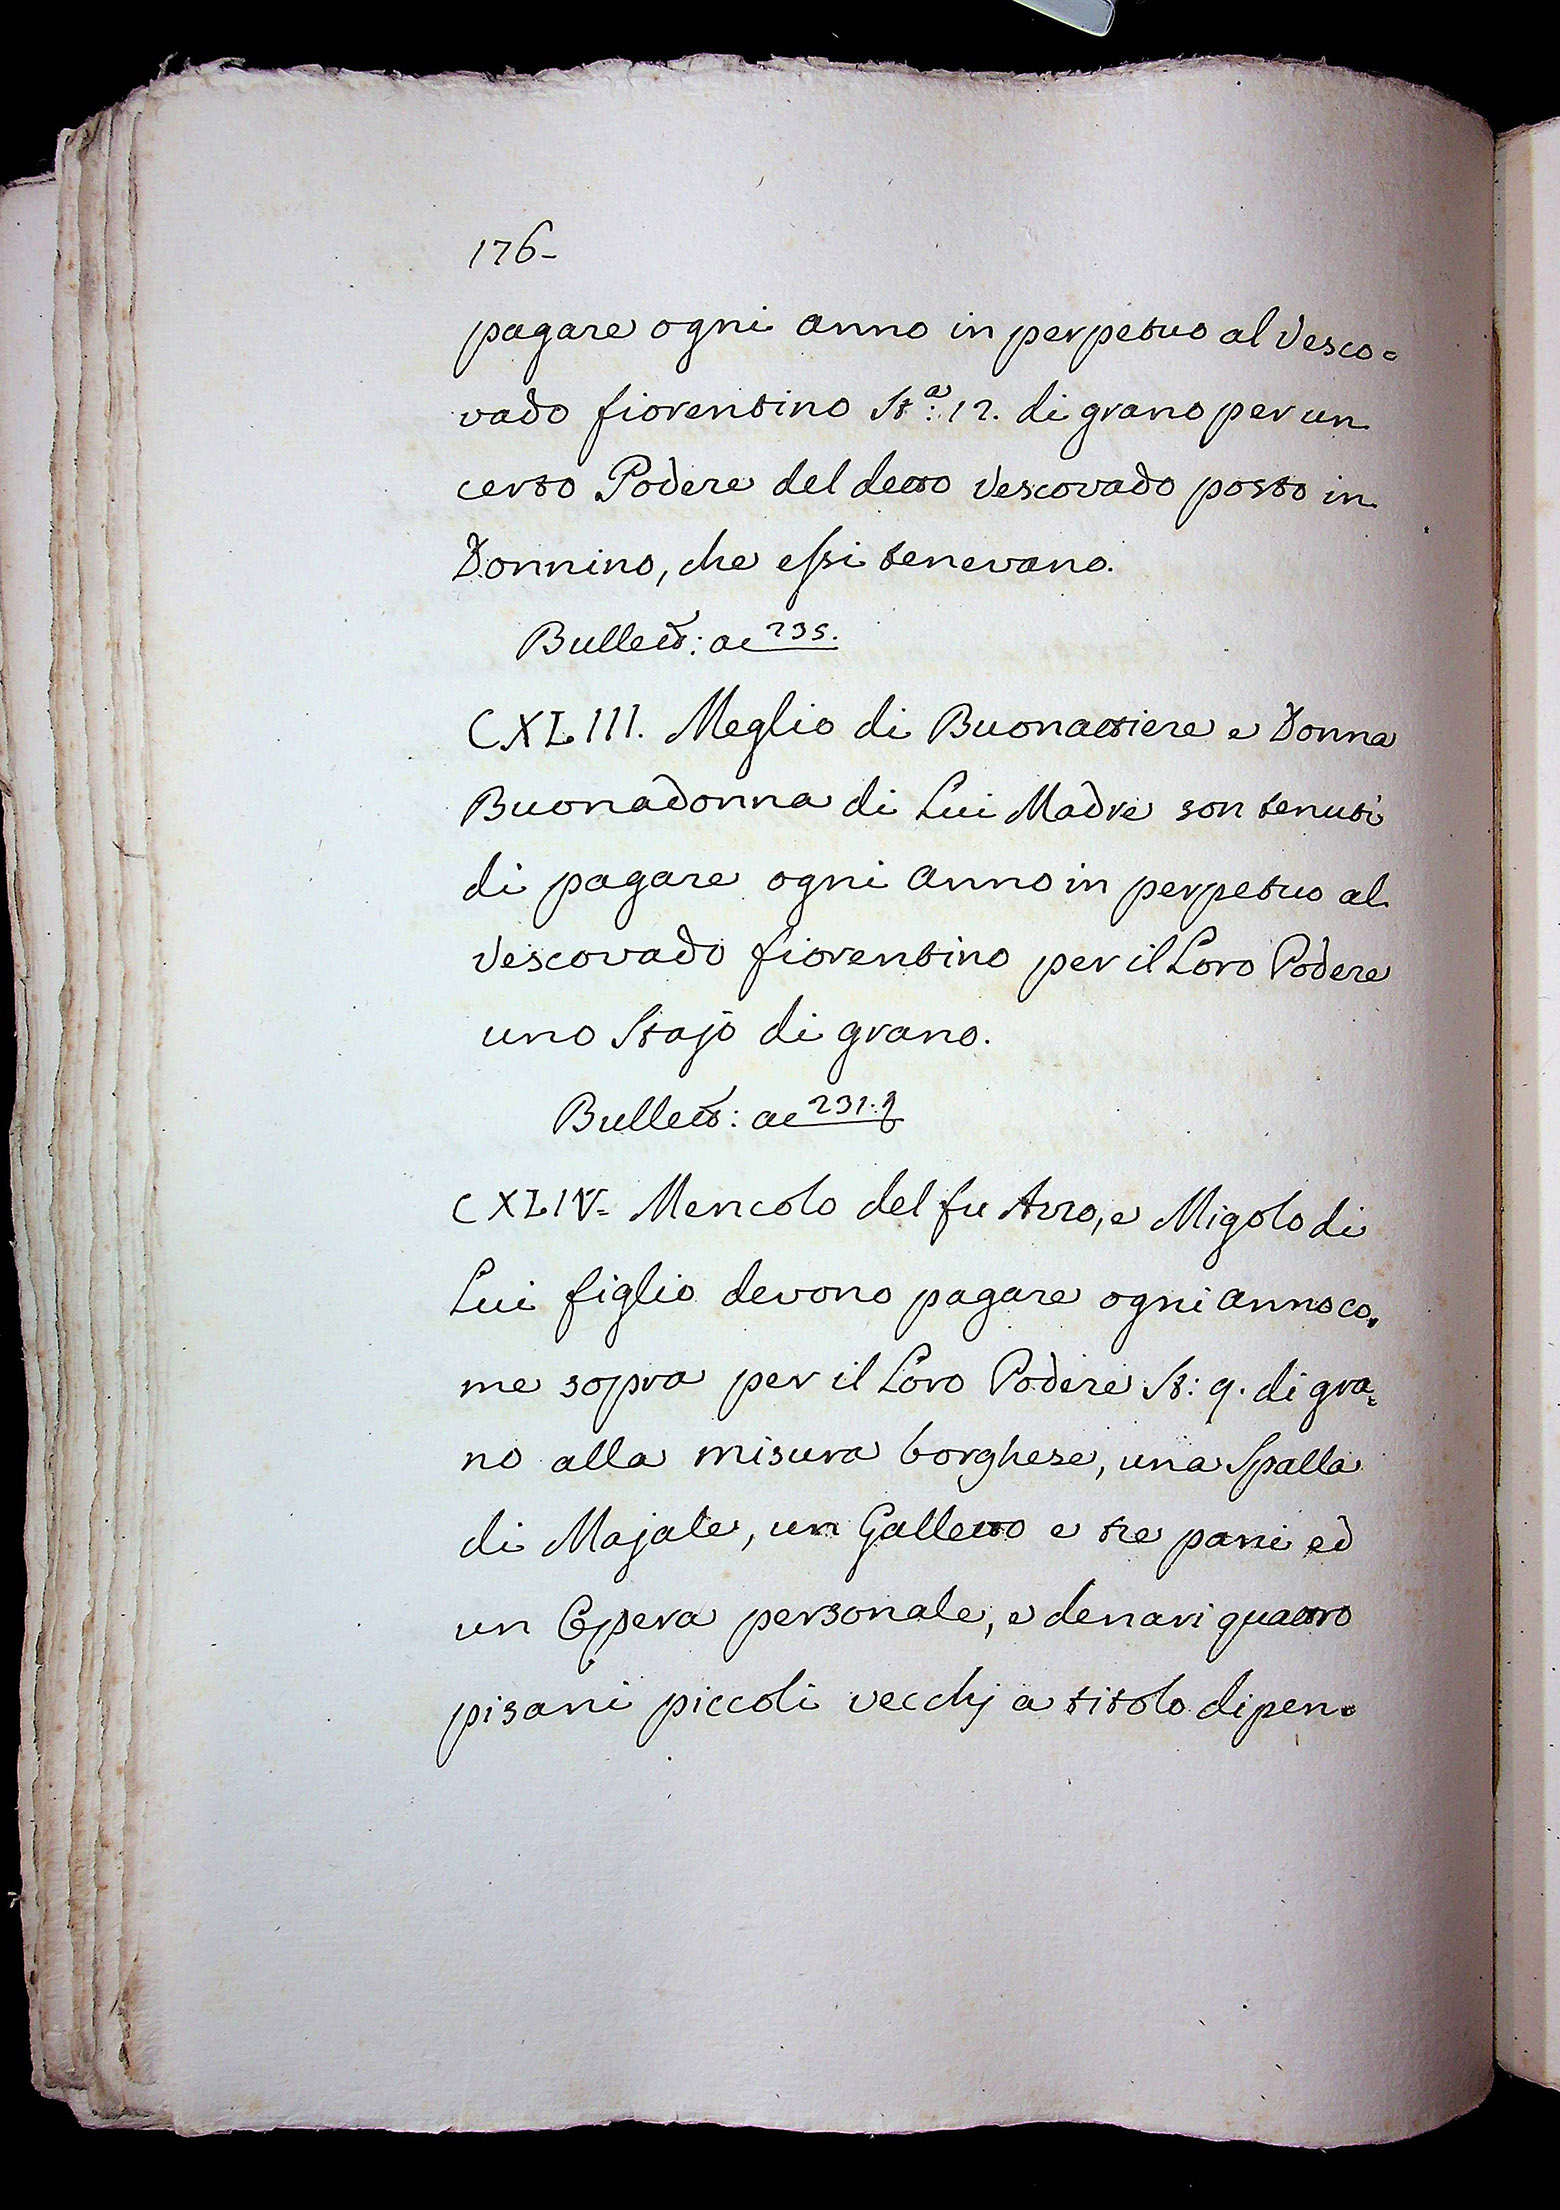 176-
pagare ogni anno in perpetuo al Vesco=
vado fiorentino Stª: 12. di grano per un
certo Podere del detto Vescovado posto in
Donnino, che essi tenevano.
Bullett: ac 235.
CXLIII. Meglio di Buonattiere e Donna
Buonadonna di Lui Madre son tenuti
di pagare ogni anno in perpetuo al
Vescovado fiorentino per il Loro Podere
uno Stajo di grano.
Bullett: ac 231.
CXLIV= Mencolo del fu e Migolo di
Lui figlio devono pagare ogni anno co=
me sopra per il Loro Podere St: 9. di gra=
no alla misura borghese, una Spalla
di Majale, un Galletto e tre pani ed
un Opera personale, e denari quattro
pisani piccoli vecchj a titolo di pen=